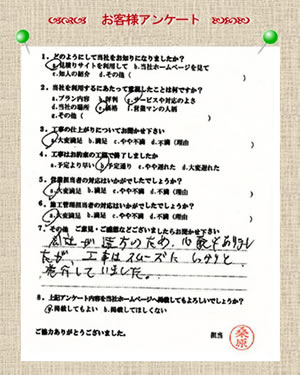 お客様アンケート
1．どのようにして当社をお知りになりましたか？
a.見積りサイトを利用して b.当社ホームページを見て
c.知人の紹介 d.その他（ ）
2．当社を利用するにあたって重視したことは何ですか？
a.プラン内容 b.評判 c.サービスや対応のよさ
d.当社の場所 e.価格 f.営業マンの人柄
g.その他（ ）
3．工事の仕上がりについてお聞かせ下さい
a.大変満足 b.満足 c.やや不満 d.不満（理由 ）
4．工事はお約束の工期で終了しましたか
a.予定より早い b.予定通り c.やや遅れた d.大変遅れた
5．営業担当者の対応はいかがでしたでしょうか？
a.大変満足 b.満足 c.やや不満 d.不満（理由
6．施工管理担当者の対応はいかがでしたでしょうか？
a.大変満足 b.満足 c.やや不満 d.不満（理由 ）
7．その他 ご意見・ご感想などございましたらお聞かせ下さい
会社が遠方のため、心配もありまし
たが、工事はスムーズに しっかりと
されていました。
8．上記アンケート内容を当社ホームページへ掲載してもよろしいでしょうか？
a.掲載してもよい b.掲載してほしくない
ご協力ありがとうございました。
担当 桑原